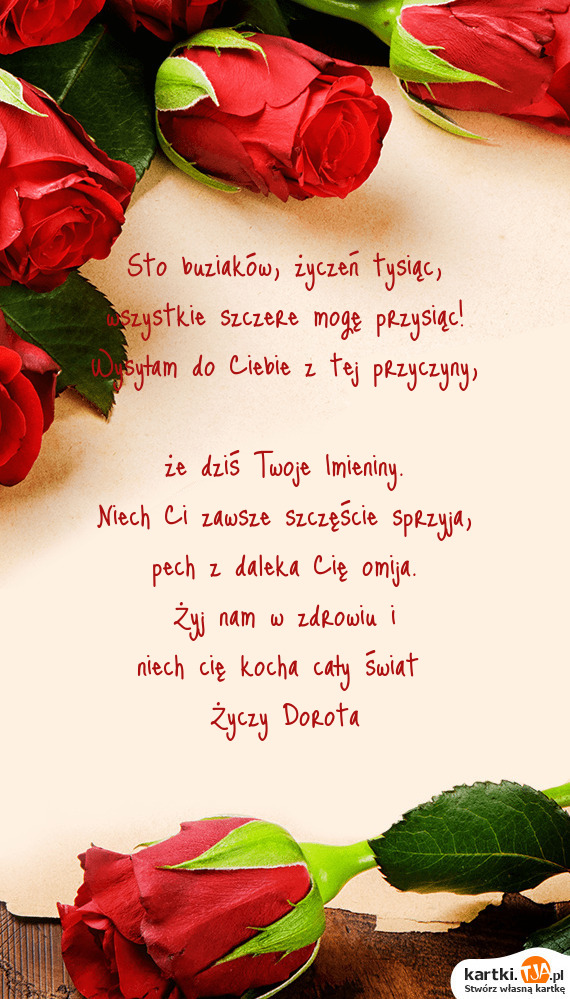 Sto buziaków, życzeń tysiąc,
wszystkie szczere mogę przysiąc!
Wysyłam do Ciebie z tej przyczyny,
że dziś Twoje Imieniny.
Niech Ci zawsze szczęście sprzyja,
pech z daleka Cię omija.
Żyj nam w zdrowiu i
niech cię kocha cały świat
Życzy Dorota
kartki.TJA.pl
Stwórz własną kartkę